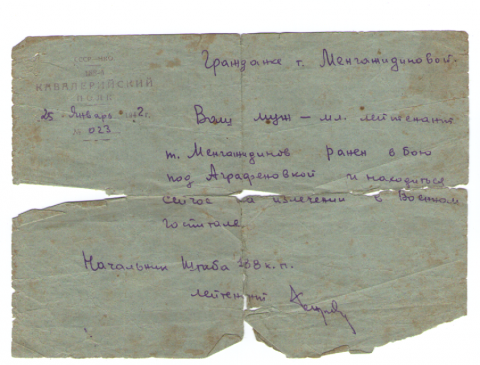 КАВАЛЕРИЙСКИЙ
ПОЛК
25 Январь 2 г.
№ 023
Гражданке т. Менгажидиновой.
Ваш муж – мл. лейтенант
т. Менгажидинов ранен в бою
под Аграфеновкой и находиться
сейчас на излечении в Военном
госпитале.
Начальник Штаба 168 к.п.
лейтенант